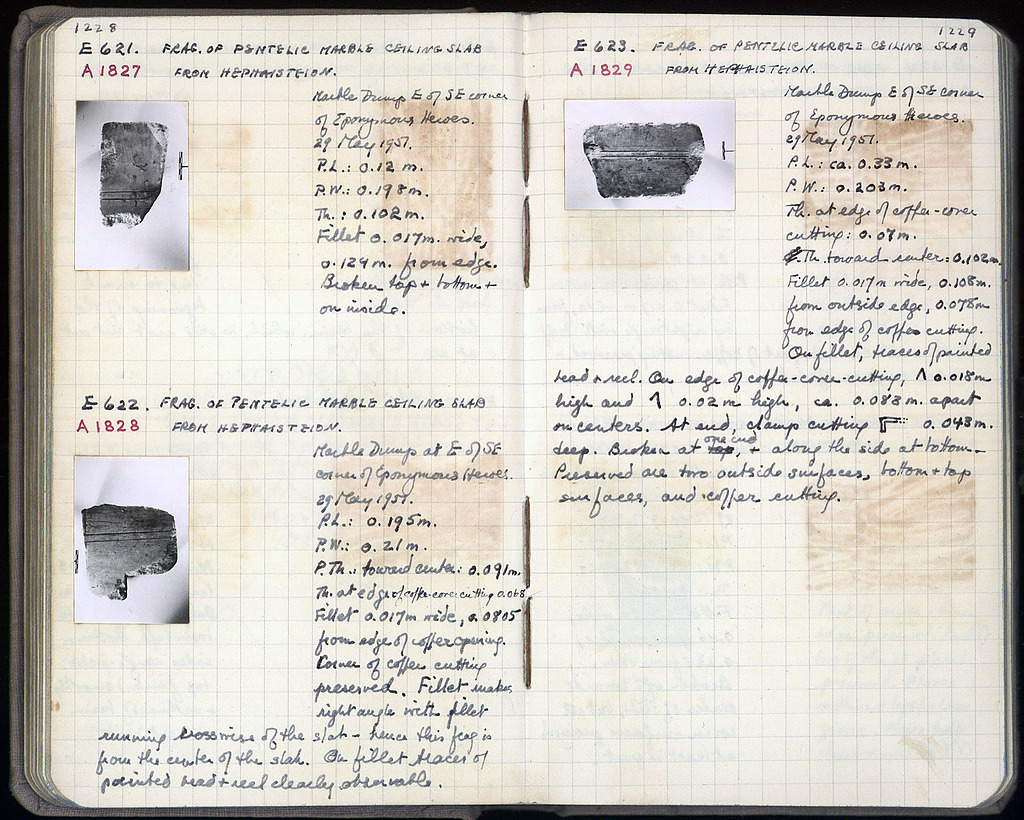 1228
E 621. FRAG. OF PENTELIC MARBLE CEILING SLAB
A 1827 FROM HEPHAISTEION.
Marble Dump E of SE corner
of Eponymous Heroes.
29 May 1951.
P.L.: 0.12 m.
P.W.: 0.198 m.
Th.: 0.102 m.
Fillet 0.017m. wide,
0.129 m. from edge.
Broken top + bottom +
on inside.
E 622. FRAG. OF PENTELIC MARBLE CEILING SLAB
A 1828 FROM HEPHAISTEION.
Marble Dump at E of SE
corner of Eponymous Heroes.
29 May 1951.
P.L.: 0.195m.
P.W.: 0.21 m.
P.Th.: toward center: 0.091m.
Th. at edge of coffer-cover cutting 0.068
Fillet 0.017m wide, 0.0805
from edge of coffer opening.
Corner of coffer cutting
preserved. Fillet makes
right angle with fillet
running crosswise of the slab - hence this frag is
from the center of the slab. On fillet traces of
painted bead + reel clearly observable.
1229
E 623. FRAG. OF PENTELIC MARBLE CEILING SLAB
A 1829 FROM HEPHAISTEION.
Marble Dump E of SE corner
of Eponymous Heroes.
29 May 1951.
P.L.: ca. 0.33 m.
P.W.: 0.203 m.
Th. at edge of coffer-cover
cutting: 0.07 m.
Th. toward center: 0.102m.
Fillet 0.017 m wide, 0.108m.
from outside edge, 0.078m
from edge of coffer cutting.
On fillet, traces of painted
bead + reel. On edge of coffer-cover-cutting, Λ 0.018m
high and 0.02 m high, ca. 0.083 m. apart
on centers. At end, clamp cutting 0.043m.
deep. Broken at one end, + along the side at bottom -
Preserved are two outside surfaces, bottom + top
surfaces, and coffer cutting.